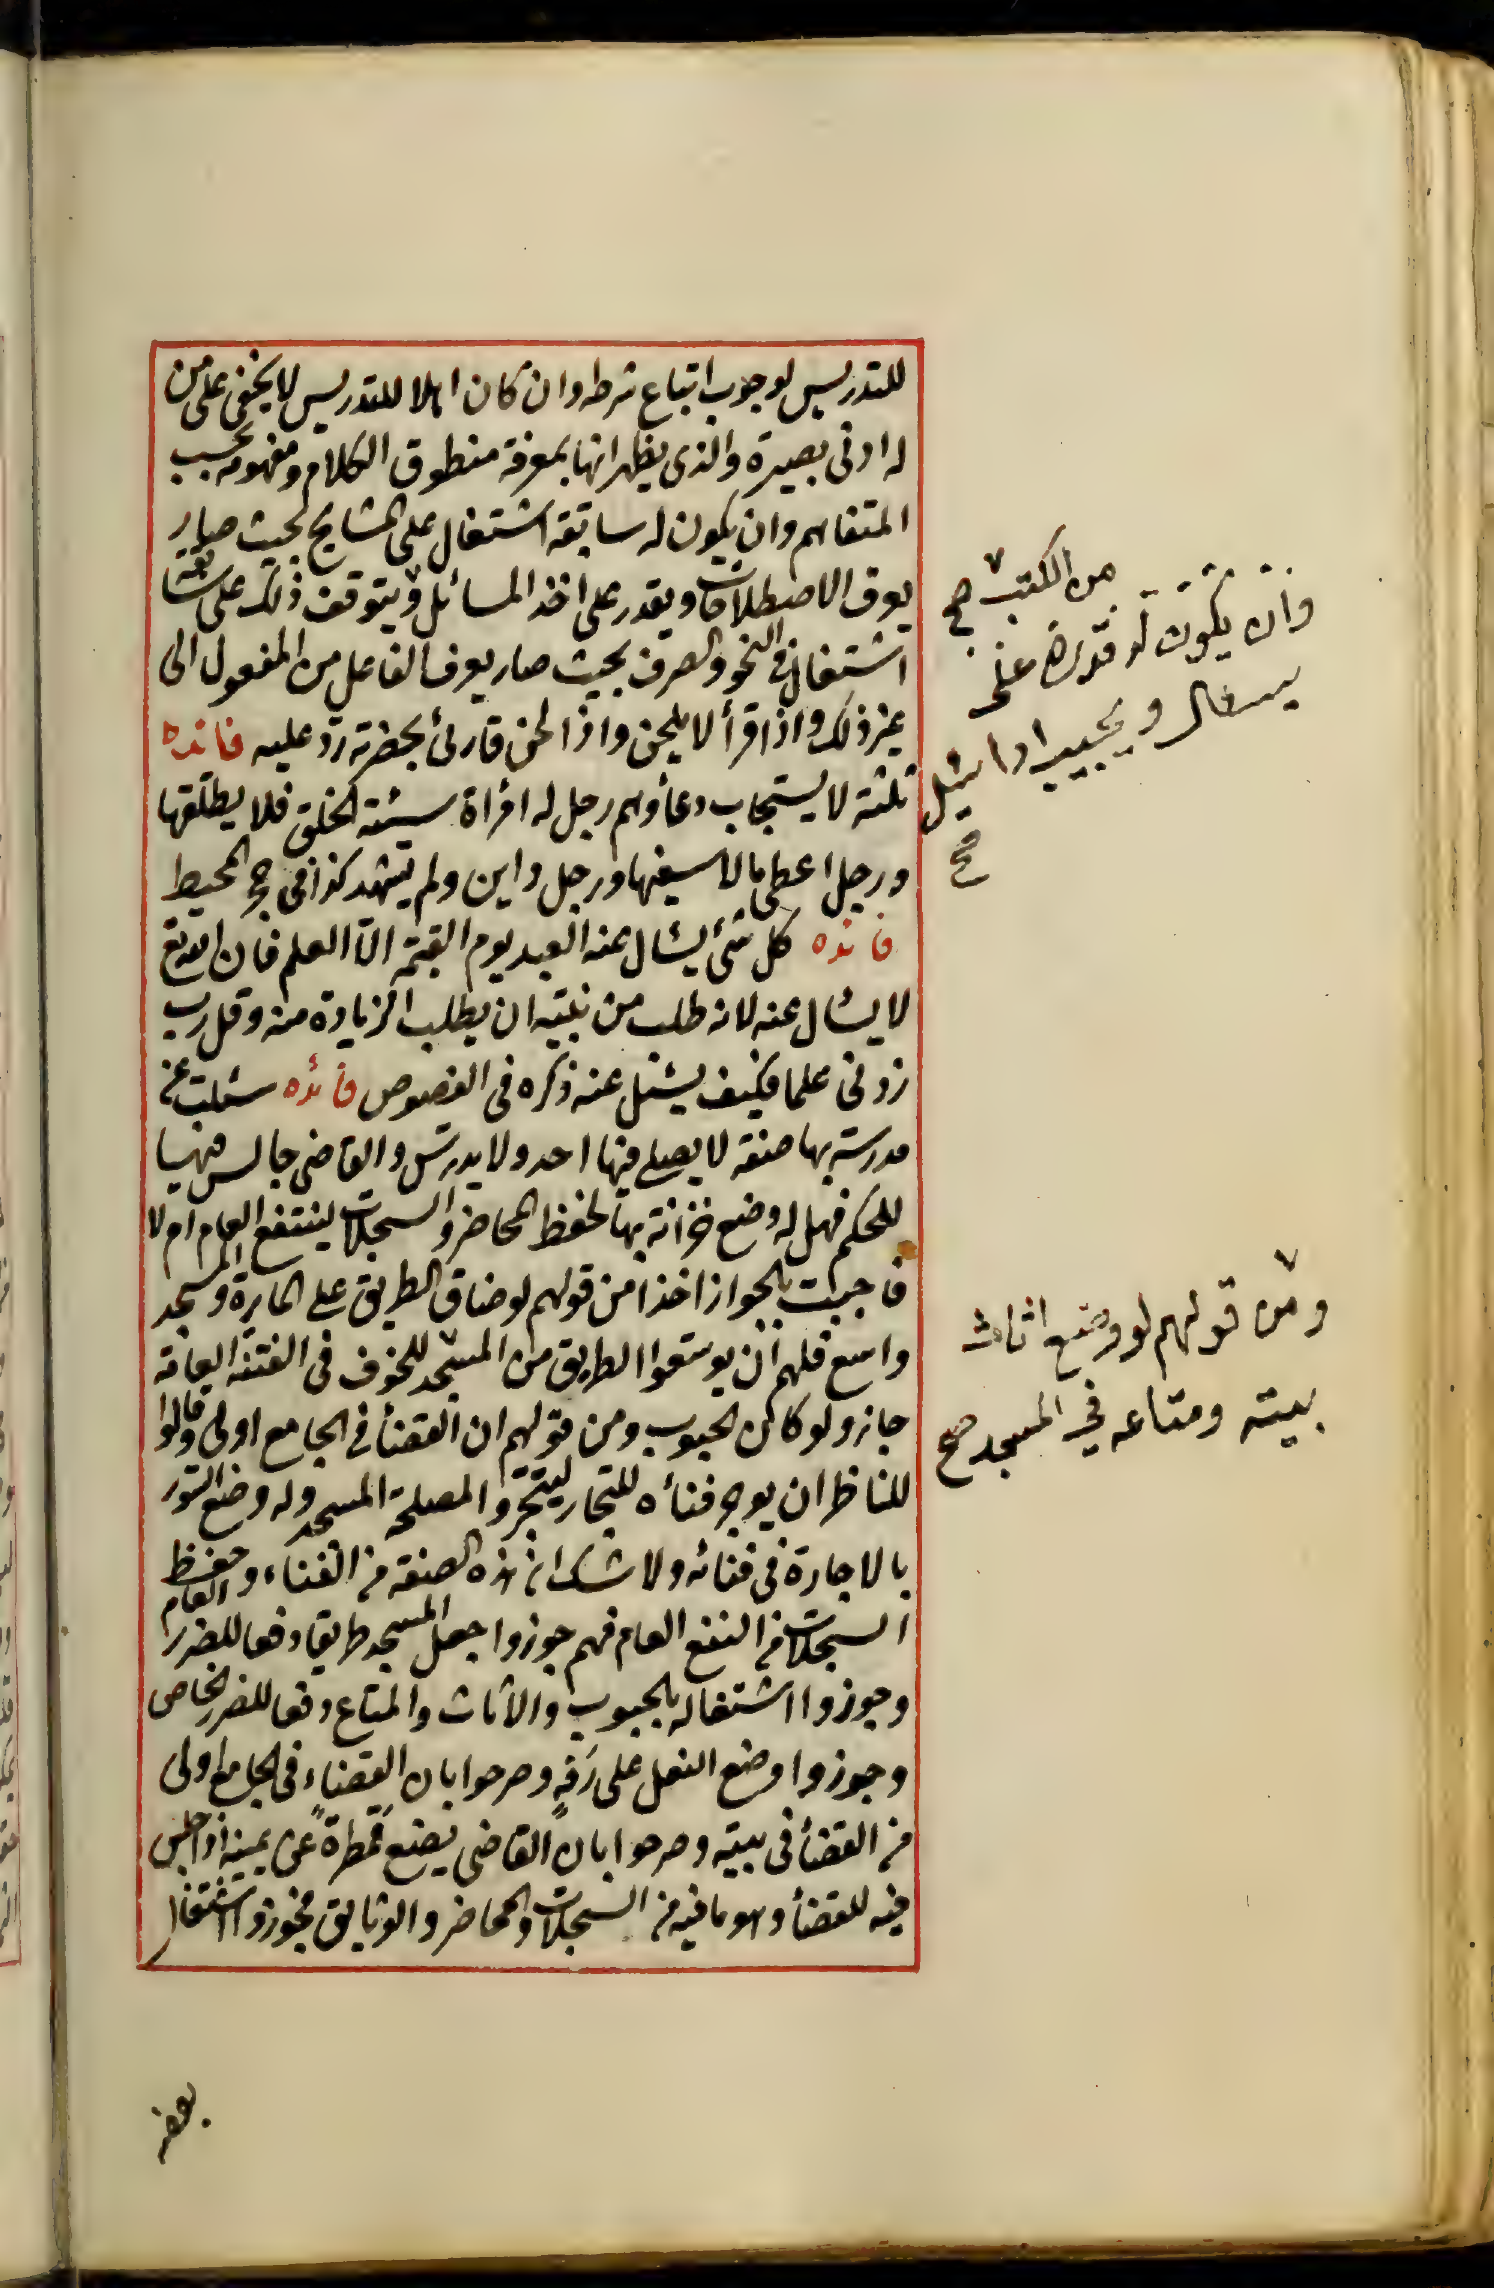 للتدريس لوجوب اتباع شرطه وان كان اهلا للتدريس لا يخفى على من
له ادنى بصيرة والذى يظهر انها بمعرفة منطوق الكلام ومفهومه بحسب
المتفاهم وان يكون له سابقة اشتغال على المشايخ بحيث صار
يعرف الاصطلاحات ويقدر على اخذ المسائل ويتوقف ذلك على سابقة
اشتغال في النحو والصرف بحيث صار يعرف الفاعل من المفعول الى
غير ذلك واذا قرأ لا يلحن واذا لحن قارئ بحضرته ردّ عليه فائده
ثلثة لا يستجاب دعاؤهم رجل له امرأة سيئة الخلق فلا يطلقها
ورجل اعطى مالا سفيها ورجل داين ولم يشهد كذا فى حج المحيط
فائده كل شئ يسأل عنه العبد يوم القيمة الّا العلم فان الله تع
لا يسأل عنه لانه طلب من نبيّه ان يطلب الزيادة منه وقل رب
زدنى علما فكيف يسئل عنه ذكره فى الفصوص فائده سئلت عن
مدرسة بها صفة لا يصلى فيها احد ولا يدرّس والقاضى جالس فيها
للحكم فهل له وضع خزانة بها لحفظ المحاضر والسجلات لينتفع العام ام لا
فاجبت بالجواز اخذا من قولهم لو ضاق الطريق على المارة والمسجد
واسع فلهم ان يوسّعوا الطريق من المسجد للخوف فى الفتنة العامة
جاز ولو كان الحبوب ومن قولهم ان القضأ فى الجامع اولى وقالوا
للناظر ان يوجر فنأه للتجار ليتّجروا لمصلحة المسجد وله وضع السّرر
بالاجارة فى فنائه ولا شك ان هذه الصفة من الفناء وحفظ
السجلات من النفع العام فهم جوزوا جعل المسجد طريقا دفعا للضرر العام
وجوزوا اشتغاله بالحبوب والاثاث والمتاع دفعا للضرر الخاص
وجوزوا وضع النعل على رَفّه وصرحوا بان القضاء فى الجامع اولى
من القضأ فى بيته وصرحوا بان القاضى يضع قمطرةً عن يمينه اذا جلس
فيه للقضأ وهو ما فيه من السجلات والمحاضر والوثايق فجوزوا اشتغال
من الكتب صح
وان يكون له قدرة على
يسأل ويجيب اذا سئل
صح
ومن قولهم لو وضع اثاث
بيته ومتاعه في المسجد صح
بعضه